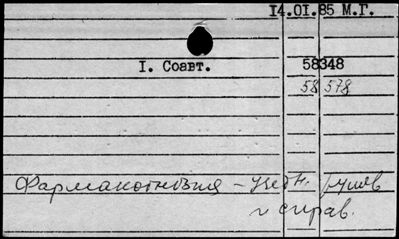 14.01.85 М.Г.
I. Соавт.
58348
58 578
Фармакогнозия – учебн. руков
и справ.